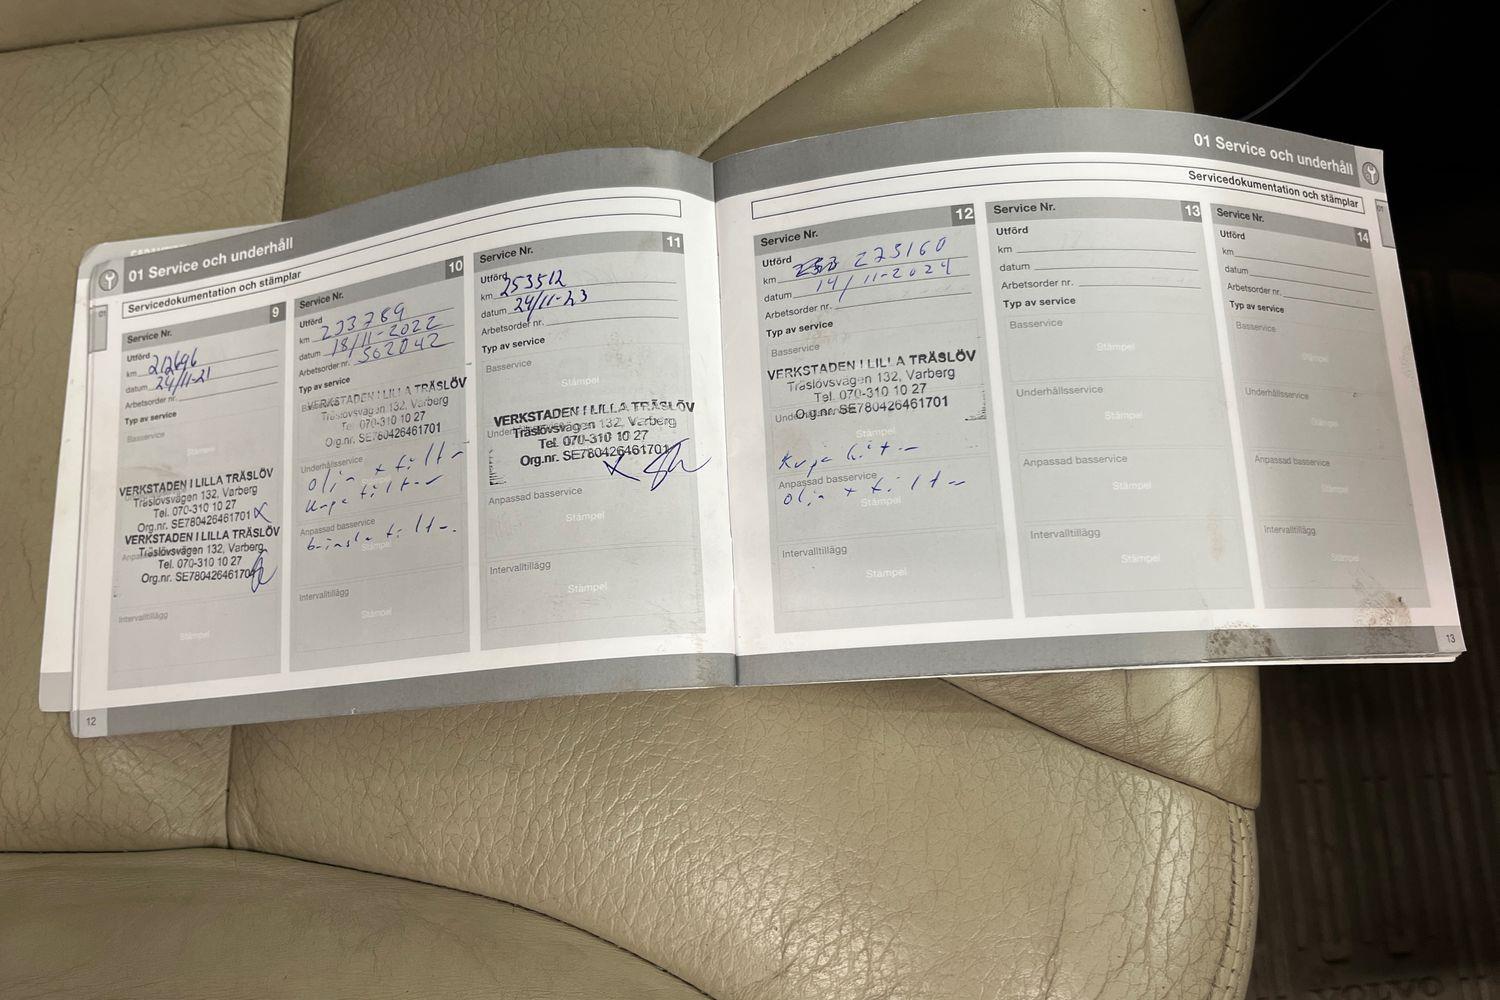 01 Service och underhåll
Servicedokumentation och stämplar
01
Service Nr. 9
Utförd
km 212696
datum 24/11-21
Arbetsorder nr.
Typ av service
Basservice
Stämpel
VERKSTADEN I LILLA TRÄSLÖV
Träslövsvägen 132, Varberg
Tel. 070-310 10 27
Org.nr. SE780426461701
VERKSTADEN I LILLA TRÄSLÖV
Träslövsvägen 132, Varberg
Tel. 070-310 10 27
Org.nr. SE780426461701
Intervalltillägg
Stämpel
12
Service Nr. 10
Utförd
km 233789
datum 18/11-2022
Arbetsorder nr. 562042
Typ av service
VERKSTADEN I LILLA TRÄSLÖV
Träslövsvägen 132, Varberg
Tel. 070-310 10 27
Org.nr. SE780426461701
Underhållsservice
olja + filter
kupefilter
Anpassad basservice
bränslefilter
Stämpel
Intervalltillägg
Stämpel
Service Nr. 11
Utförd
km 253512
datum 24/11-23
Arbetsorder nr.
Typ av service
Basservice
Stämpel
VERKSTADEN I LILLA TRÄSLÖV
Träslövsvägen 132, Varberg
Tel. 070-310 10 27
Org.nr. SE780426461701
Anpassad basservice
Stämpel
Intervalltillägg
Stämpel
01 Service och underhåll
Servicedokumentation och stämplar
01
Service Nr. 12
Utförd
km 273160
datum 14/11-2024
Arbetsorder nr.
Typ av service
Basservice
VERKSTADEN I LILLA TRÄSLÖV
Träslövsvägen 132, Varberg
Tel. 070-310 10 27
Org.nr. SE780426461701
Stämpel
Kupefilter
Anpassad basservice
olja + filter
Stämpel
Intervalltillägg
Stämpel
Service Nr. 13
Utförd
km
datum
Arbetsorder nr.
Typ av service
Basservice
Stämpel
Underhållsservice
Stämpel
Anpassad basservice
Stämpel
Intervalltillägg
Stämpel
Service Nr. 14
Utförd
km
datum
Arbetsorder nr.
Typ av service
Basservice
Stämpel
Underhållsservice
Stämpel
Anpassad basservice
Stämpel
Intervalltillägg
Stämpel
13